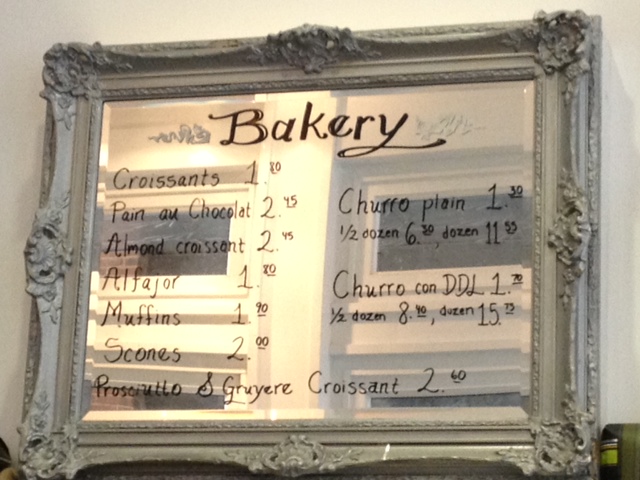 Bakery
Croissants 1.80
Pain au Chocolat 2.45
Almond croissant 2.45
Alfajor 1.80
Muffins 1.90
Scones 2.00
Prosciutto & Gruyere Croissant 2.60
Churro plain 1.30
1/2 dozen 6.30, dozen 11.55
Churro con DDL 1.70
1/2 dozen 8.40, dozen 15.75